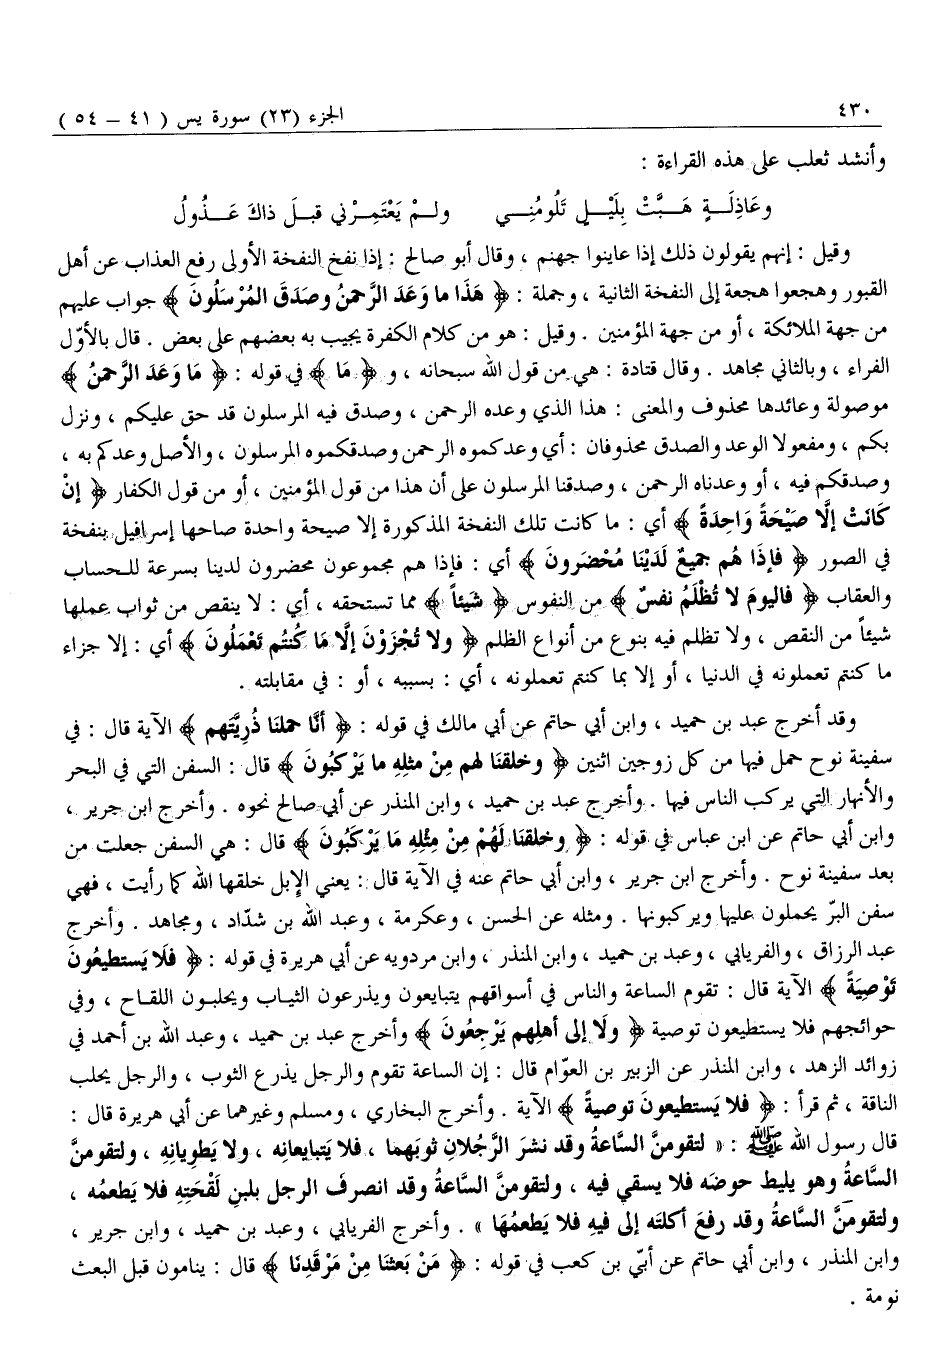 ٤٣٠
الجزء (٢٣) سورة يس ( ٤١ – ٥٤ )
وأنشد ثعلب على هذه القراءة :
وعَاذِلَـةٍ هَـبَّتْ بِلَيْـلٍ تَلُومُنِـي ولـمْ يَعْتَمِرْني قبلَ ذاكَ عَـذُولُ
وقيل : إنهم يقولون ذلك إذا عاينوا جهنم ، وقال أبو صالح : إذا نفخ النفخة الأولى رفع العذاب عن أهل
القبور وهجعوا هجعة إلى النفخة الثانية ، وجملة : ﴿ هَذَا ما وَعَد الرَّحمنُ وصدَقَ المُرْسَلُونَ ﴾ جواب عليهم
من جهة الملائكة ، أو من جهة المؤمنين . وقيل : هو من كلام الكفرة يجيب به بعضهم على بعض . قال بالأوّل
الفراء ، وبالثاني مجاهد . وقال قتادة : هي من قول الله سبحانه ، و ﴿ مَا ﴾ في قوله : ﴿ مَا وَعَدَ الرَّحمنُ ﴾
موصولة وعائدها محذوف والمعنى : هذا الذي وعده الرحمن ، وصدق فيه المرسلون قد حق عليكم ، ونزل
بكم ، ومفعولا الوعد والصدق محذوفان : أي وعدكموه الرحمن وصدقكموه المرسلون ، والأصل وعدكم به ،
وصدقكم فيه ، أو وعدناه الرحمن ، وصدقنا المرسلون على أن هذا من قول المؤمنين ، أو من قول الكفار ﴿ إنْ
كَانَتْ إلَّا صَيْحَةً وَاحِدَةً ﴾ أي : ما كانت تلك النفخة المذكورة إلا صيحة واحدة صاحها إسرافيل بنفخة
في الصور ﴿ فإذَا هُم جميعٌ لَدَيْنَا مُحْضَرونَ ﴾ أي : فإذا هم مجموعون محضرون لدينا بسرعة للحساب
والعقاب ﴿ فاليومَ لا تُظْلَمُ نفسٌ ﴾ من النفوس ﴿ شَيئاً ﴾ مما تستحقه ، أي : لا ينقص من ثواب عملها
شيئاً من النقص ، ولا تظلم فيه بنوع من أنواع الظلم ﴿ ولا تُجْزَوْنَ إلَّا مَا كُنتُم تَعْمَلُونَ ﴾ أي : إلا جزاء
ما كنتم تعملونه في الدنيا ، أو إلا بما كنتم تعملونه ، أي : بسببه ، أو : في مقابلته .
وقد أخرج عبد بن حميد ، وابن أبي حاتم عن أبي مالك في قوله : ﴿ أنَّا حملنَا ذُريَّتَهم ﴾ الآية قال : في
سفينة نوح حمل فيها من كل زوجين اثنين ﴿ وخلقنَا لهم مِنْ مثلِهِ ما يَرْكبُونَ ﴾ قال : السفن التي في البحر
والأنهار التي يركب الناس فيها . وأخرج عبد بن حميد ، وابن المنذر عن أبي صالح نحوه . وأخرج ابن جرير ،
وابن أبي حاتم عن ابن عباس في قوله : ﴿ وخلقنَا لَهُمْ مِنْ مِثْلِهِ مَا يَرْكَبُونَ ﴾ قال : هي السفن جعلت من
بعد سفينة نوح . وأخرج ابن جرير ، وابن أبي حاتم عنه في الآية قال : يعني الإبل خلقها الله كما رأيت ، فهي
سفن البرّ يحملون عليها ويركبونها . ومثله عن الحسن ، وعكرمة ، وعبد الله بن شدّاد ، ومجاهد . وأخرج
عبد الرزاق ، والفريابي ، وعبد بن حميد ، وابن المنذر ، وابن مردويه عن أبي هريرة في قوله : ﴿ فلَا يَستطيعُونَ
تَوْصِيَةً ﴾ الآية قال : تقوم الساعة والناس في أسواقهم يتبايعون ويذرعون الثياب ويحلبون اللقاح ، وفي
حوائجهم فلا يستطيعون توصية ﴿ ولَا إلى أهلِهم يَرْجِعُونَ ﴾ وأخرج عبد بن حميد ، وعبد الله بن أحمد في
زوائد الزهد ، وابن المنذر عن الزبير بن العوّام قال : إن الساعة تقوم والرجل يذرع الثوب ، والرجل يحلب
الناقة ، ثم قرأ : ﴿ فلا يَستطيعونَ توصيةً ﴾ الآية . وأخرج البخاري ، ومسلم وغيرهما عن أبي هريرة قال :
قال رسول الله ﷺ : « لتقومنَّ السَّاعةُ وقد نشرَ الرَّجُلانِ ثوبَهما ، فلا يَتبايعانِه ، ولا يَطويانِهِ ، ولتقومنَّ
السَّاعةُ وهو يليط حوضَه فلا يسقي فيه ، ولتقومنَّ السَّاعةُ وقد انصرفَ الرجل بلبنِ لَقْحَتِهِ فلا يَطعمُه ،
ولتقومنَّ السَّاعةُ وقد رفعَ أكلتَه إلى فيهِ فلا يَطعمُهَا » . وأخرج الفريابي ، وعبد بن حميد ، وابن جرير ،
وابن المنذر ، وابن أبي حاتم عن أبيّ بن كعب في قوله : ﴿ مَنْ بَعثنَا مِنْ مَرْقَدِنَا ﴾ قال : ينامون قبل البعث
نومة .